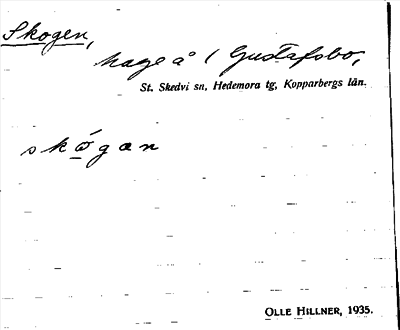 Skogen,
hage å Gustafsbo,
St. Skedvi sn, Hedemora tg, Kopparbergs län.
skógan
OLLE HILLNER, 1935.